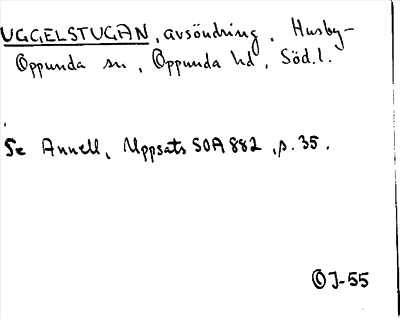 UGGELSTUGAN, avsöndring, Husby-
Oppunda sn, Oppunda hd, Söd.l.
Se Annell, Uppsats SOA 882, p. 35.
OJ-55